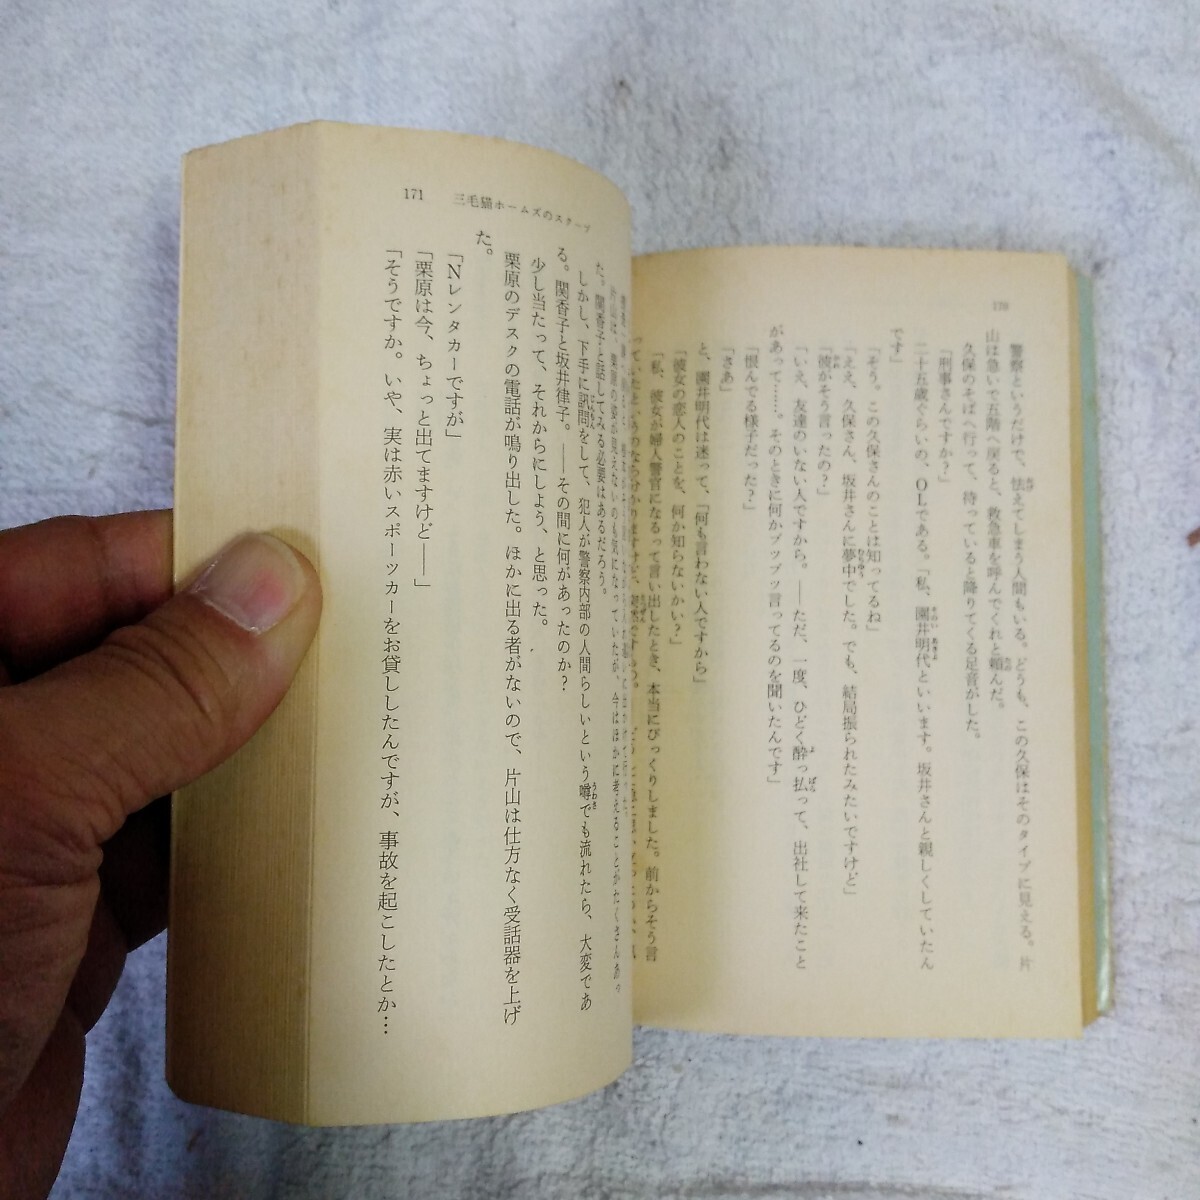 170
警察というだけで、怯えてしまう人間もいる。どうも、この久保はそのタイプに見える。片
山は急いで五階へ戻ると、救急車を呼んでくれと頼んだ。
久保のそばへ行って、待っていると降りてくる足音がした。
「刑事さんですか?」
二十五歳ぐらいの、OLである。「私、園井明代といいます。坂井さんと親しくしていたん
です」
「そう。この久保さんのことは知ってるね」
「ええ、久保さん、坂井さんに夢中でした。でも、結局振られたみたいですけど」
「彼がそう言ったの?」
「いえ、友達のいない人ですから。――ただ、一度、ひどく酔っ払って、出社して来たこと
があって……。そのときに何かブツブツ言ってるのを聞いたんです」
「恨んでる様子だった?」
「さあ」
と、園井明代は迷って、「何も言わない人ですから」
「彼女の恋人のことを、何か知らないかい?」
「私、彼女が婦人警官になるって言い出したとき、本当にびっくりしました。前からそう言
っていたというのなら分かりますけど、突然ですもの。
171 三毛猫ホームズのスクープ
片山は、栗原の姿が見えないのも気になっていたが、今はほかに考えることがたくさんあっ
た。関香子と話してみる必要はあるだろう。
しかし、下手に訊問をして、犯人が警察内部の人間らしいという噂でも流れたら、大変であ
る。関香子と坂井律子。――その間に何があったのか?
少し当たって、それからにしよう、と思った。
栗原のデスクの電話が鳴り出した。ほかに出る者がないので、片山は仕方なく受話器を上げ
た。
「Nレンタカーですが」
「栗原は今、ちょっと出てますけど――」
「そうですか。いや、実は赤いスポーツカーをお貸ししたんですが、事故を起こしたとか…